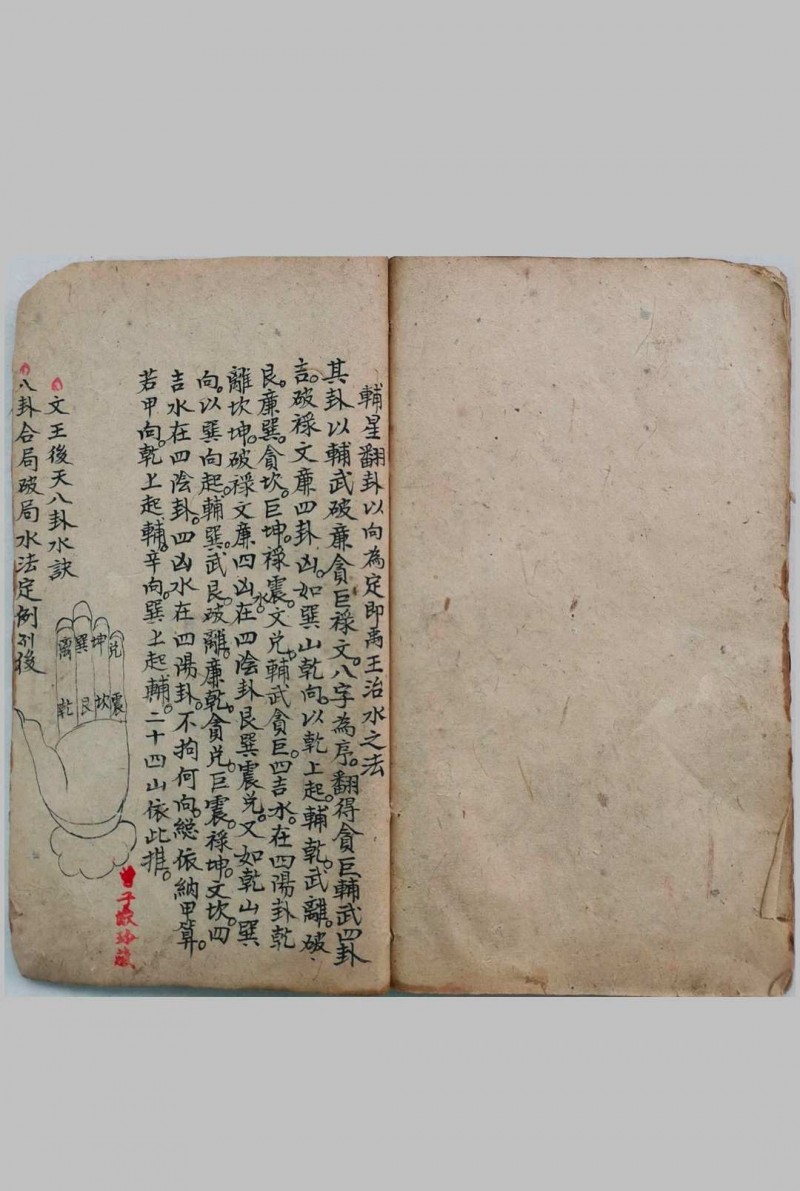 輔星翻卦以向為定即禹王治水之法
其卦以輔武破廉貪巨祿文。八字為序。翻得貪巨輔武四卦
吉。破祿文廉四卦凶。如巽山乾向。以乾上起輔。乾。武離。破
艮。廉巽。貪坎。巨坤。祿震。文兌。輔武貪巨。四吉水。在四陽卦乾
離坎坤。破祿文廉四凶水在四陰卦艮巽震兌。又如乾山巽
向。以巽向起。輔巽。武艮。破離。廉乾。貪兌。巨震。祿坤。文坎。四
吉水在四陰卦。四凶水在四陽卦。不拘何向。總依納甲算。
若甲向。乾上起輔。辛向。巽上起輔。二十四山依此推。
文王後天八卦水訣
八卦合局破局水法定例列後
離巽坤兌
乾艮坎震